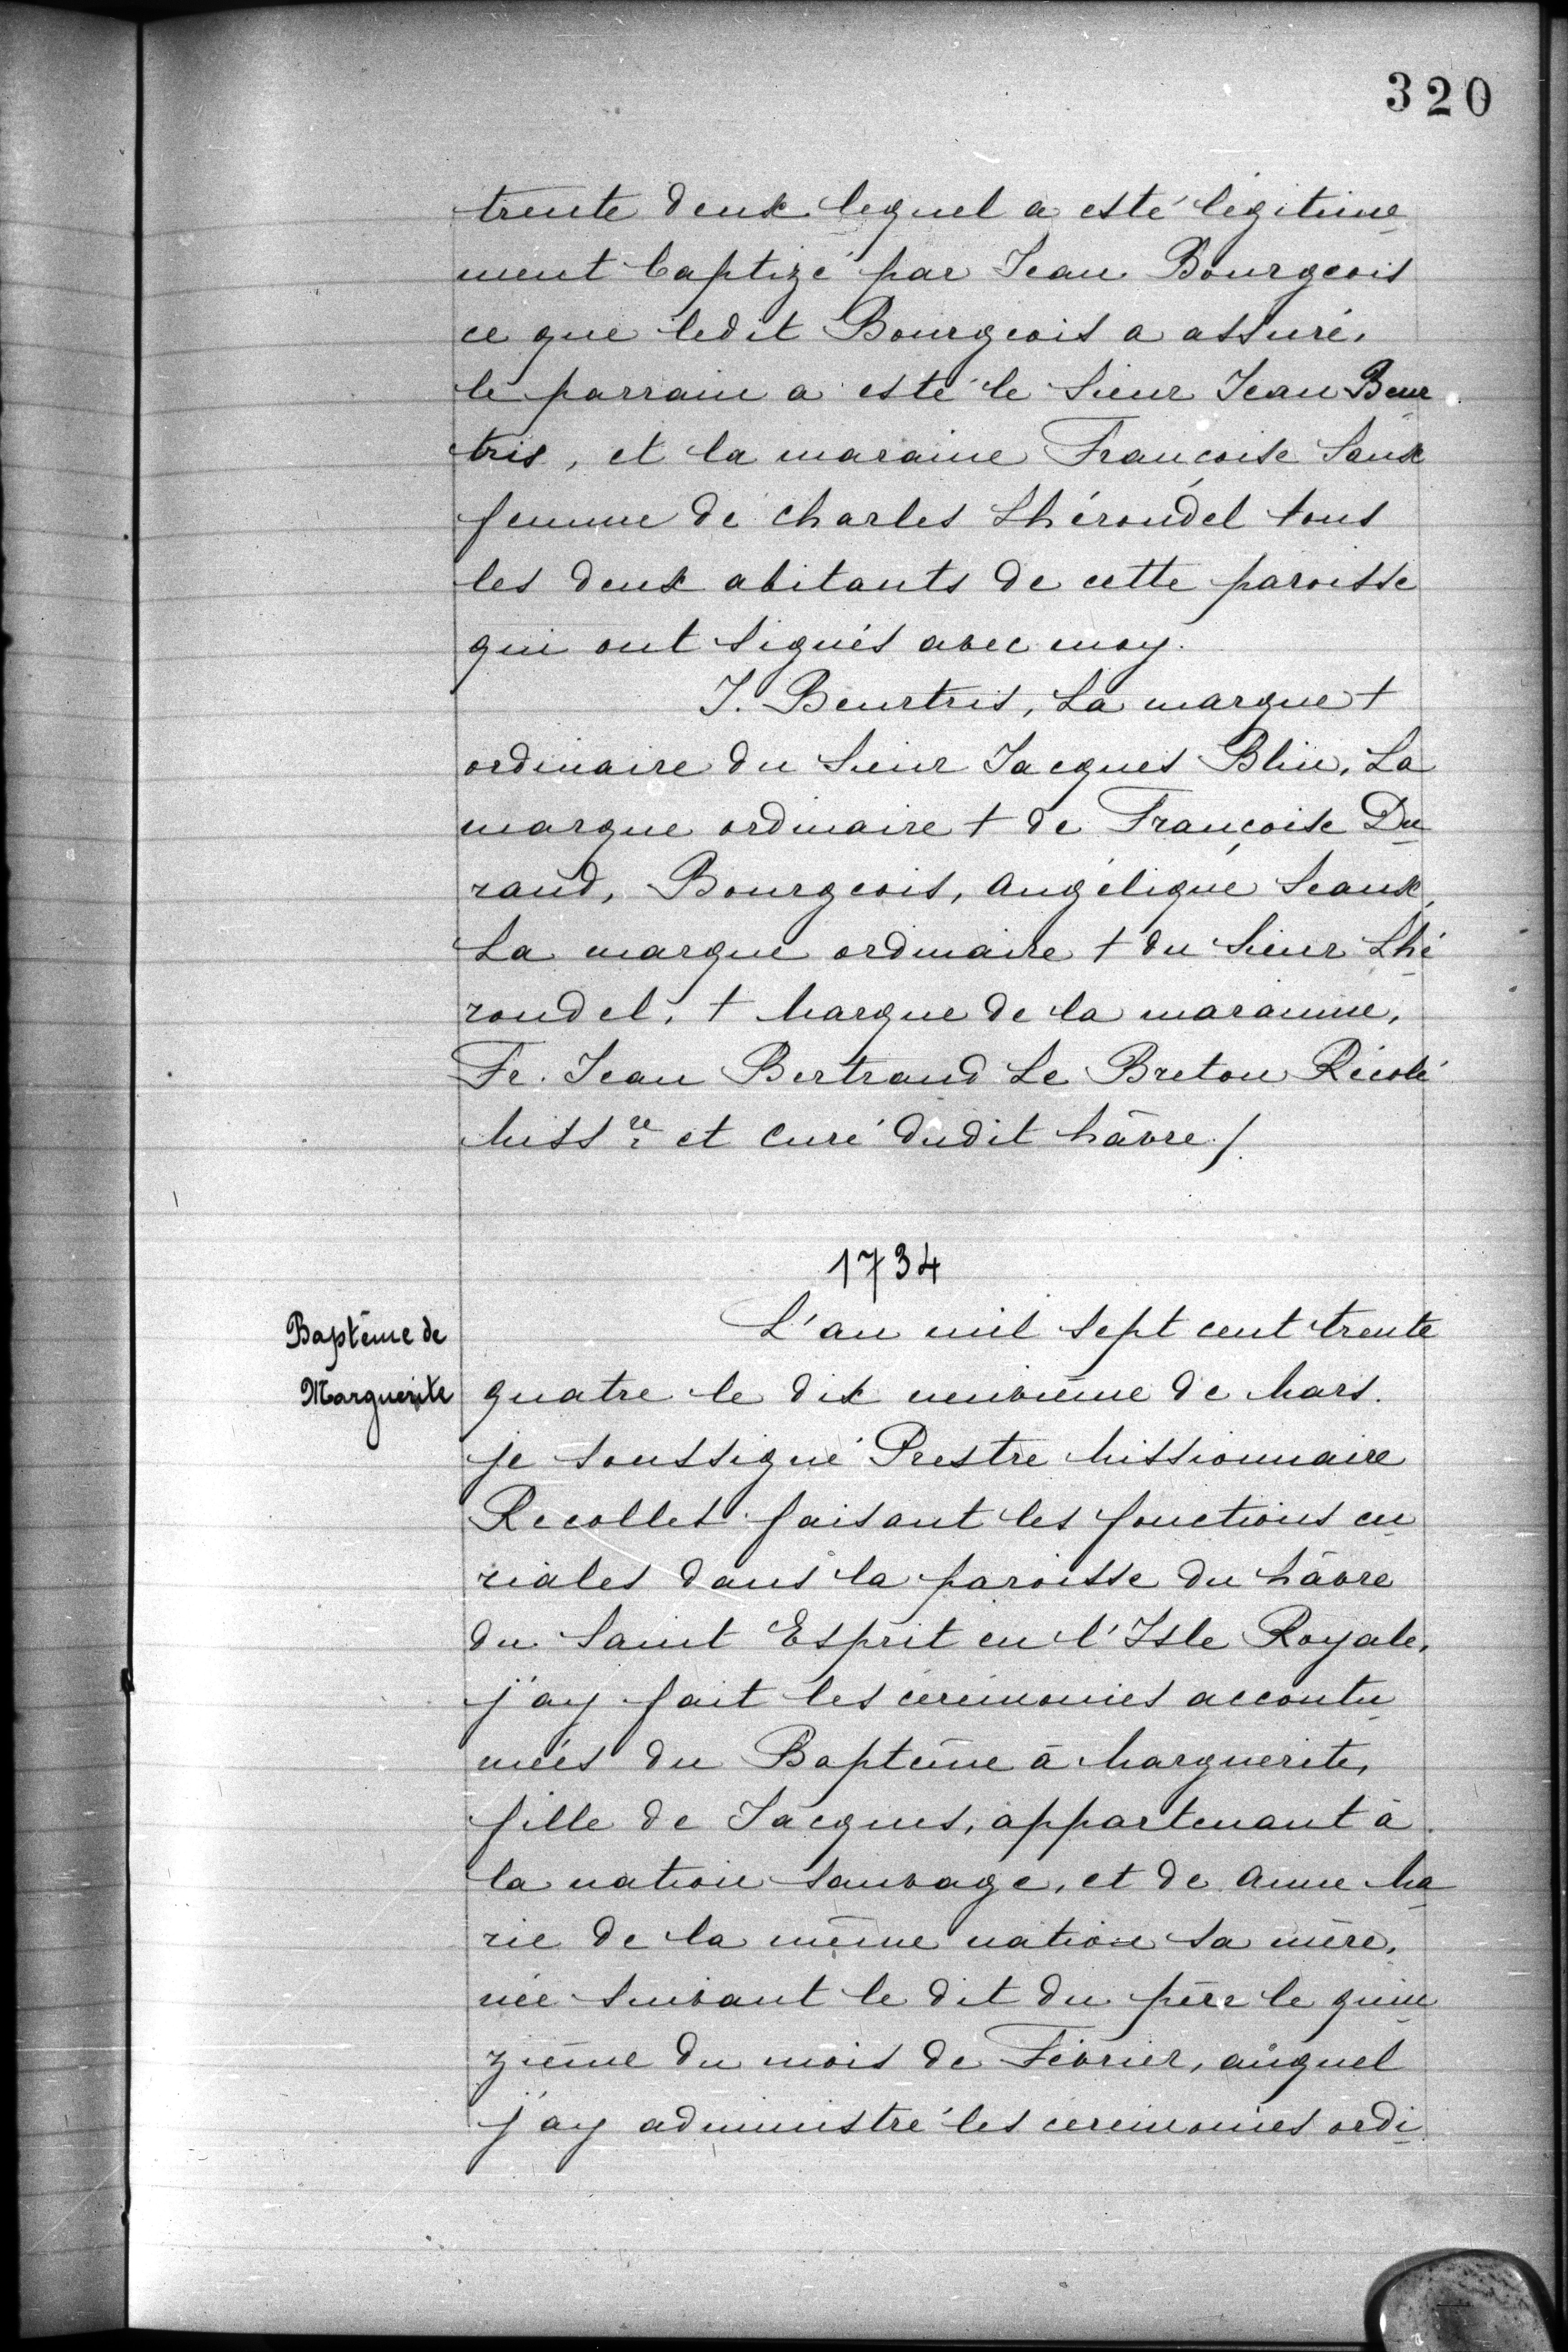 320
trente deux lequel a esté légitime
ment baptizé par Jean Bourgeois
ce que ledit Bourgeois a assuré,
le parrain a esté le Sieur Jean Beur
tris, et la maraine Francoise Saux
femme de Charles Lhérondel tous
les deux abitants de cette paroisse
qui ont signés avec moy.
J. Beurtris, La marque +
ordinaire du Sieur Jacques Blin, La
marque ordinaire + de Françoise Du
rand, Bourgeois, Angélique Seaux,
La marque ordinaire + du Sieur Lhé
rondel, + Marque de la maranne,
Fr. Jean Bertrand Le Breton Récolé
Missre et Curé dudit hâvre /.
1734
Baptême de
Marguerite
L'an mil sept cent trente
quatre le dix neuvième de Mars.
je soussigné Prestre Missionnaire
Recollet faisant les fonctions cu
riales dans la paroisse du hâvre
du Saint Esprit en l'Isle Royale,
j'ay fait les cérémonies accoutu
mées du Baptême à Marguerite,
fille de Jacques, appartenant à
la nation Sauvage, et de Anne Ma
rie de la même nation sa mère,
née suivant le dit du père le quin
zième du mois de Février, auquel
j'ay administré les cérémonies ordi